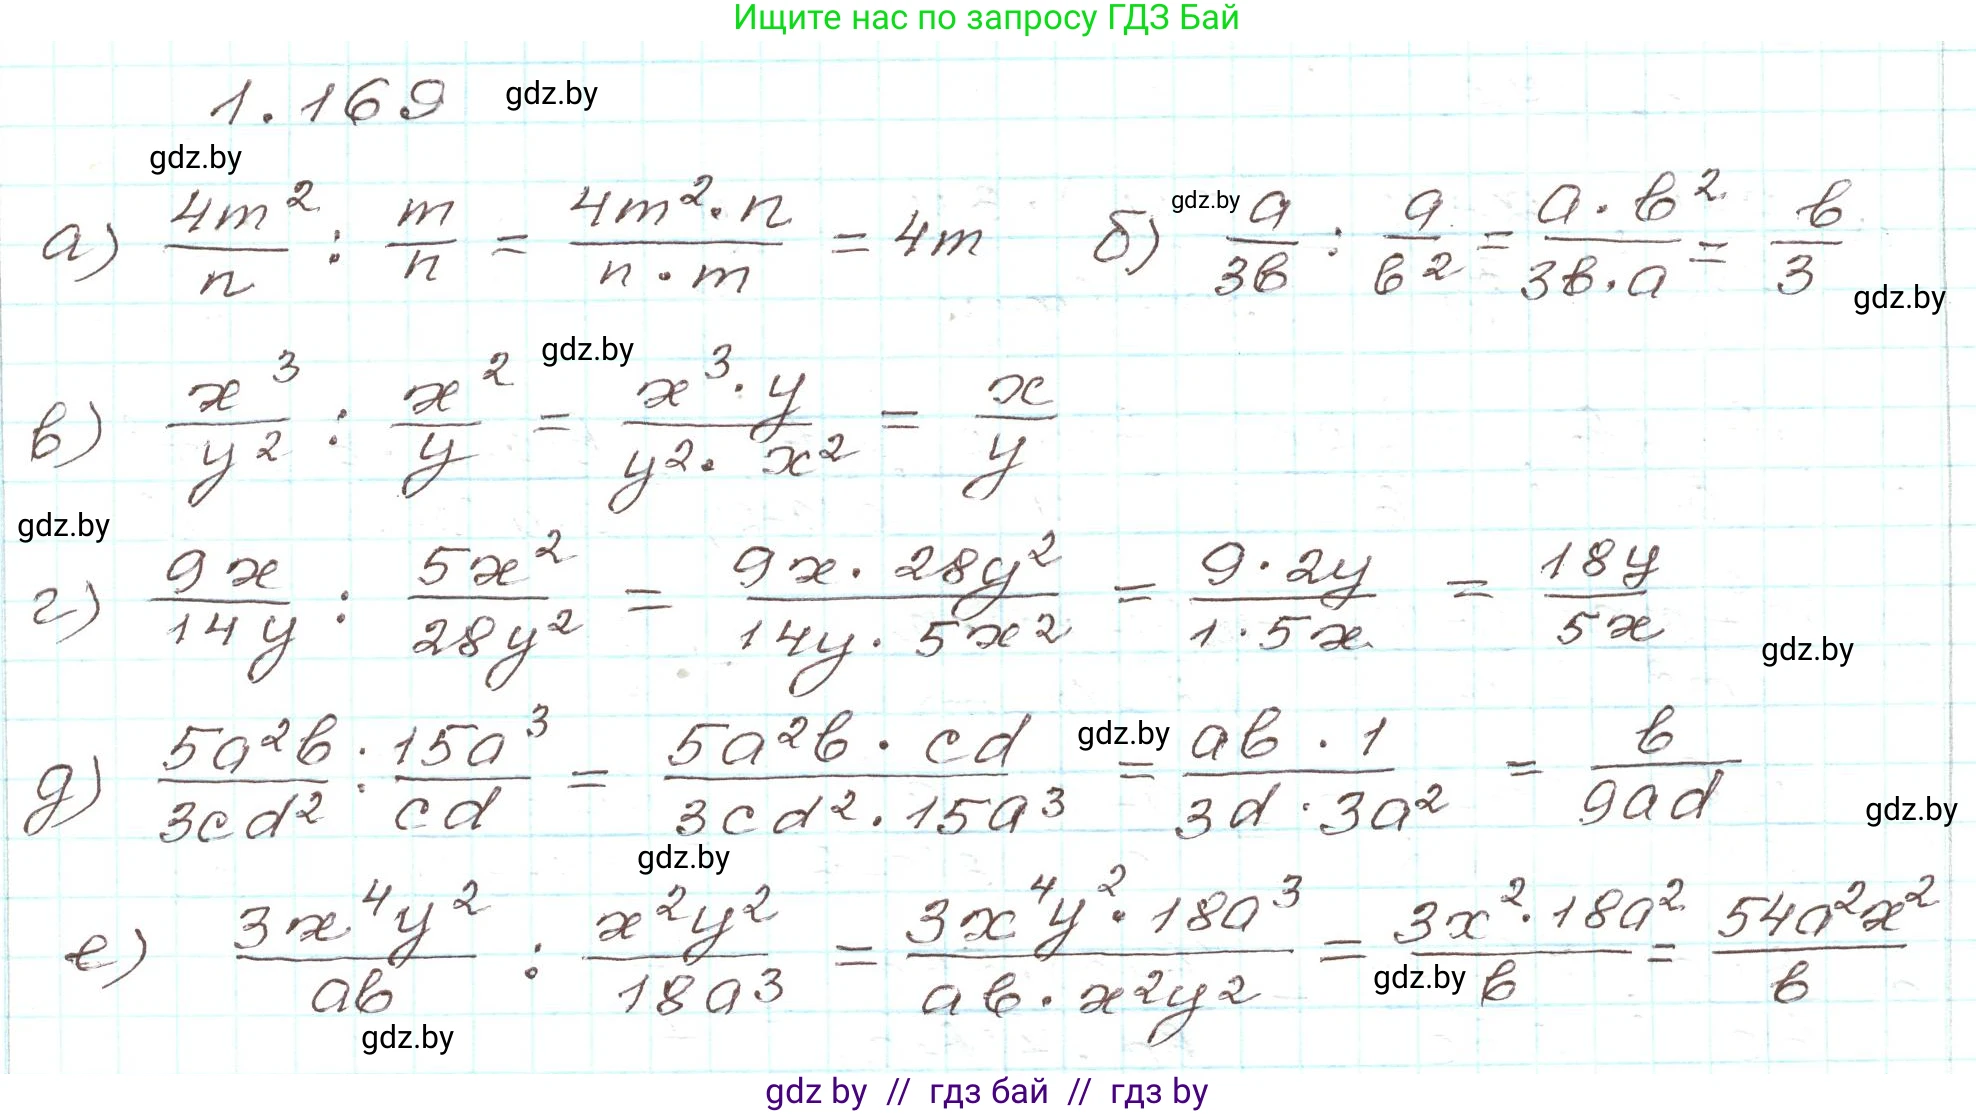 Ищите нас по запросу ГДЗ Бай
1.169 gdz.by
gdz.by
а) 4m²/n : m/n = 4m²·n/n·m = 4m б) gdz.by a/3b : a/b² = a·b²/3b·a = b/3
gdz.by
gdz.by
в) x³/y² : x²/y = x³·y/y²·x² = x/y
gdz.by
г) 9x/14y : 5x²/28y² = 9x·28y²/14y·5x² = 9·2y/1·5x = 18y/5x
gdz.by
д) 5a²b/3cd² : 15a³/cd = 5a²b·cd/3cd²·15a³ gdz.by = ab·1/3d·3a² = b/9ad
gdz.by
gdz.by
е) 3x⁴y²/ab : x²y²/18a³ = 3x⁴y²·18a³/ab·x²y² = 3x²·18a²/b = 54a²x²/b
gdz.by
gdz.by
gdz by // гдз бай // гдз by